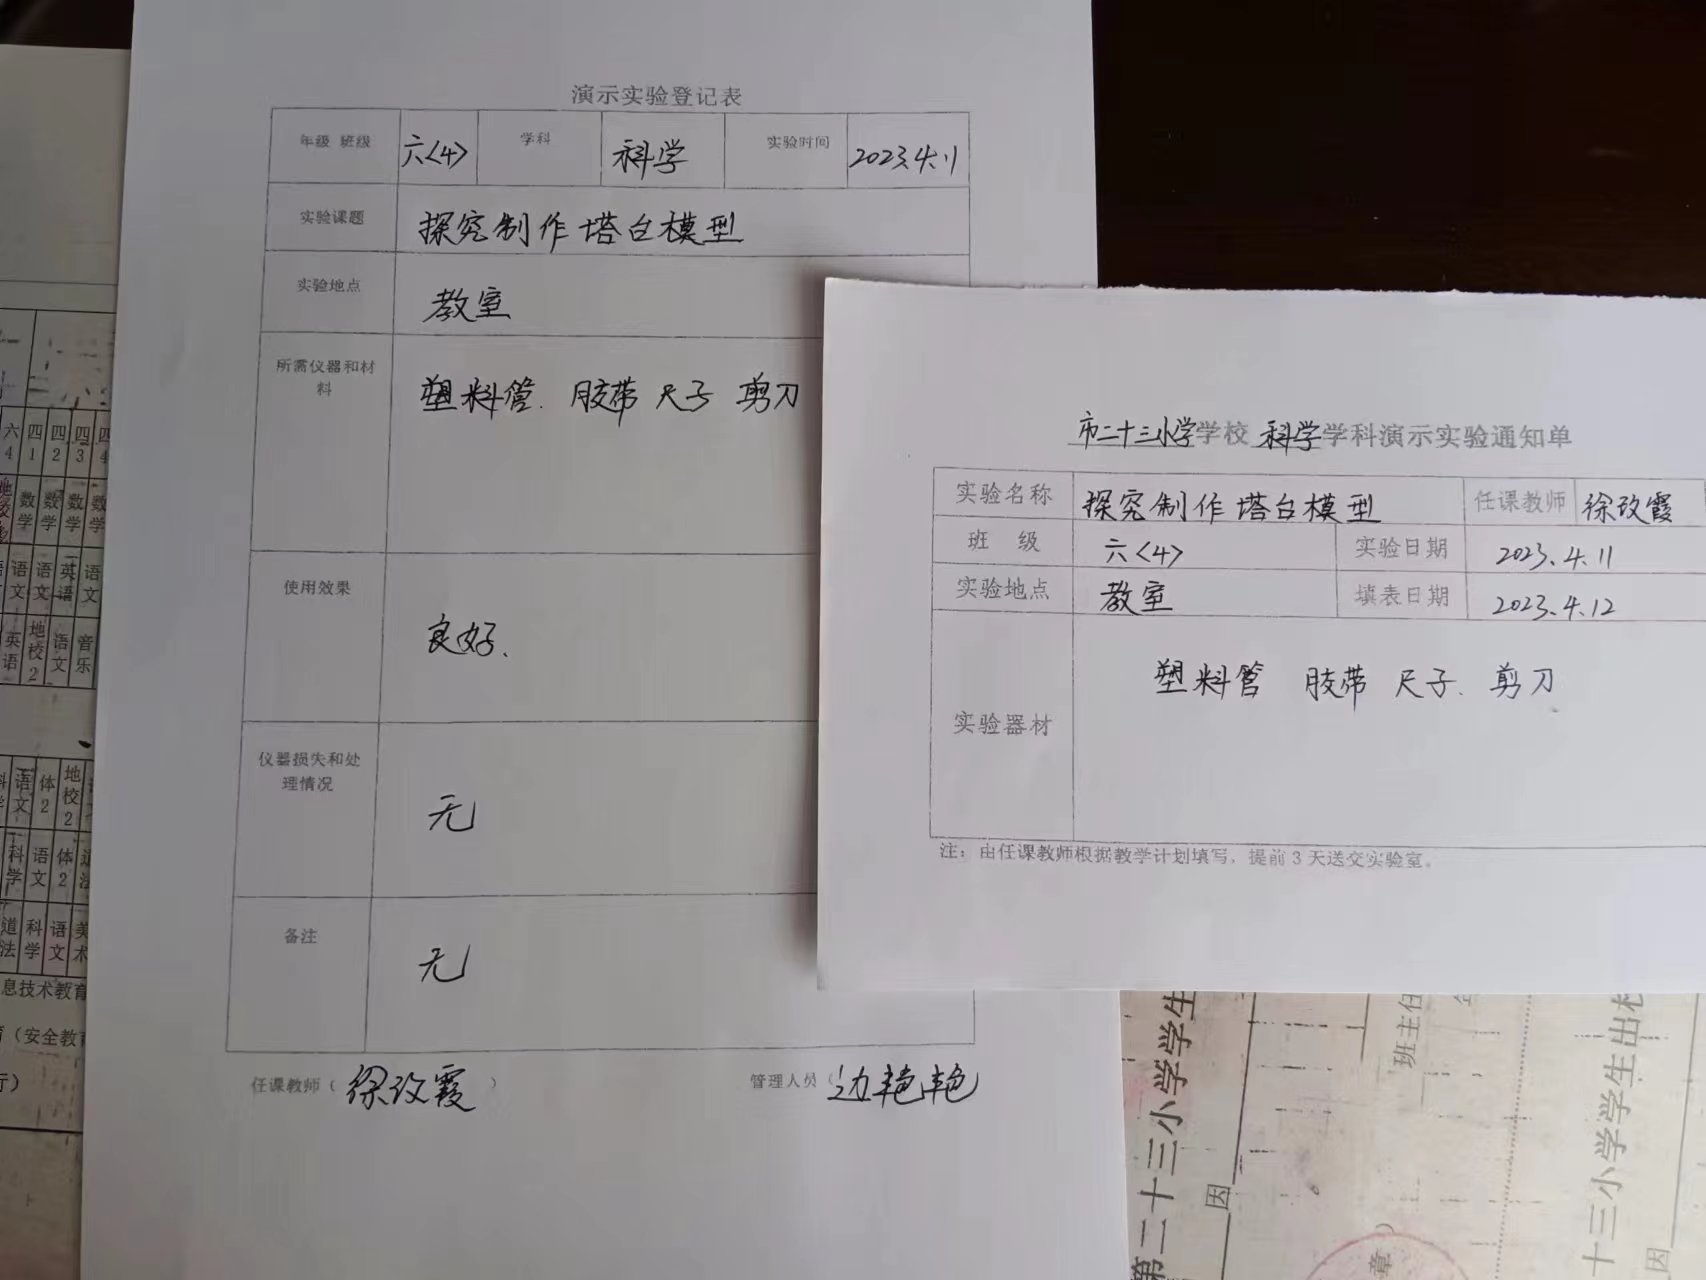 演示实验登记表
年级 班级 六<4> 学科 科学 实验时间 2023.4.11
实验课题 探究制作塔台模型
实验地点 教室
所需仪器和材料 塑料管. 胶带 尺子 剪刀
使用效果 良好.
仪器损失和处理情况 无
备注 无
任课教师（徐玫霞） 管理人员（边艳艳
市二十三小学学校 科学学科演示实验通知单
实验名称 探究制作塔台模型 任课教师 徐玫霞
班 级 六<4> 实验日期 2023.4.11
实验地点 教室 填表日期 2023.4.12
实验器材 塑料管 胶带 尺子. 剪刀
注：由任课教师根据教学计划填写，提前3天送交实验室。
六4 四1 四2 四3 四4
数学 数学 数学 数学
语文 语文 英语 语文
英语 地校2 语文 音乐
语文 体2 地校2
科学 语文 体2
道法 科学 语文 美术
息技术教育
（安全教育
行）
第二十三小学学生
因
班主任
章）
十三小学学生出校
因